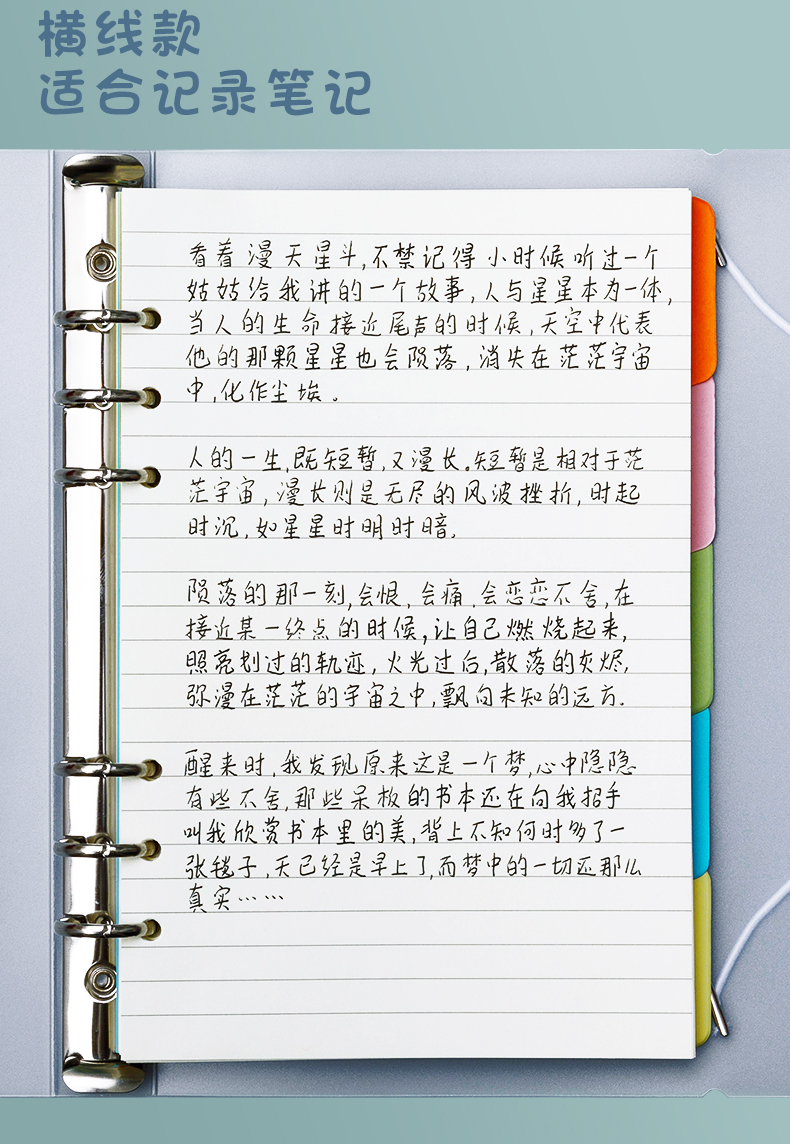 横线款
适合记录笔记
看着漫天星斗,不禁记得小时候听过一个
姑姑给我讲的一个故事,人与星星本为一体,
当人的生命接近尾声的时候,天空中代表
他的那颗星星也会陨落,消失在茫茫宇宙
中,化作尘埃。
人的一生,既短暂,又漫长。短暂是相对于茫
茫宇宙,漫长则是无尽的风波挫折,时起
时沉,如星星时明时暗.
陨落的那一刻,会恨,会痛,会恋恋不舍,在
接近某一终点的时候,让自己燃烧起来,
照亮划过的轨迹,火光过后,散落的灰烬,
弥漫在茫茫的宇宙之中,飘向未知的远方.
醒来时,我发现原来这是一个梦,心中隐隐
有些不舍,那些呆板的书本还在向我招手
叫我欣赏书本里的美,背上不知何时多了一
张毯子,天已经是早上了,而梦中的一切还那么
真实……